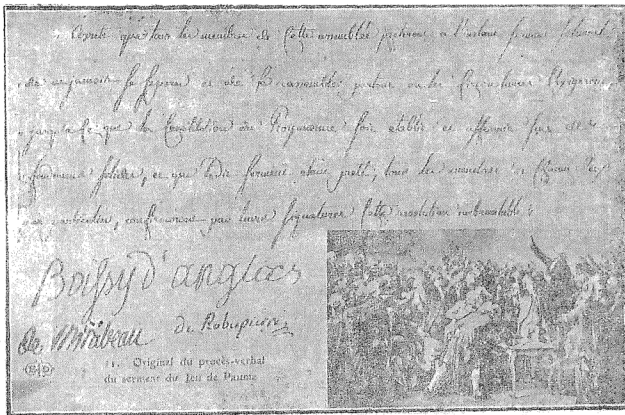 que tous les membres de cette assemblée preteront a l'instant serment solennel
de ne jamais se separer et de se rassembler partout ou les circonstances l'exigeront
jusqu'a ce que la Constitution du Royaume soit etablie et affermie sur des
fondemens solides, et que ledit serment etant preté, tous les membres et chacun
en particulier, confirmeront par leurs signatures cette resolution inebranlable :
Boissy d'anglas
de Mirabeau de Robespierre
11. Original du procès-verbal
du serment du Jeu de Paume